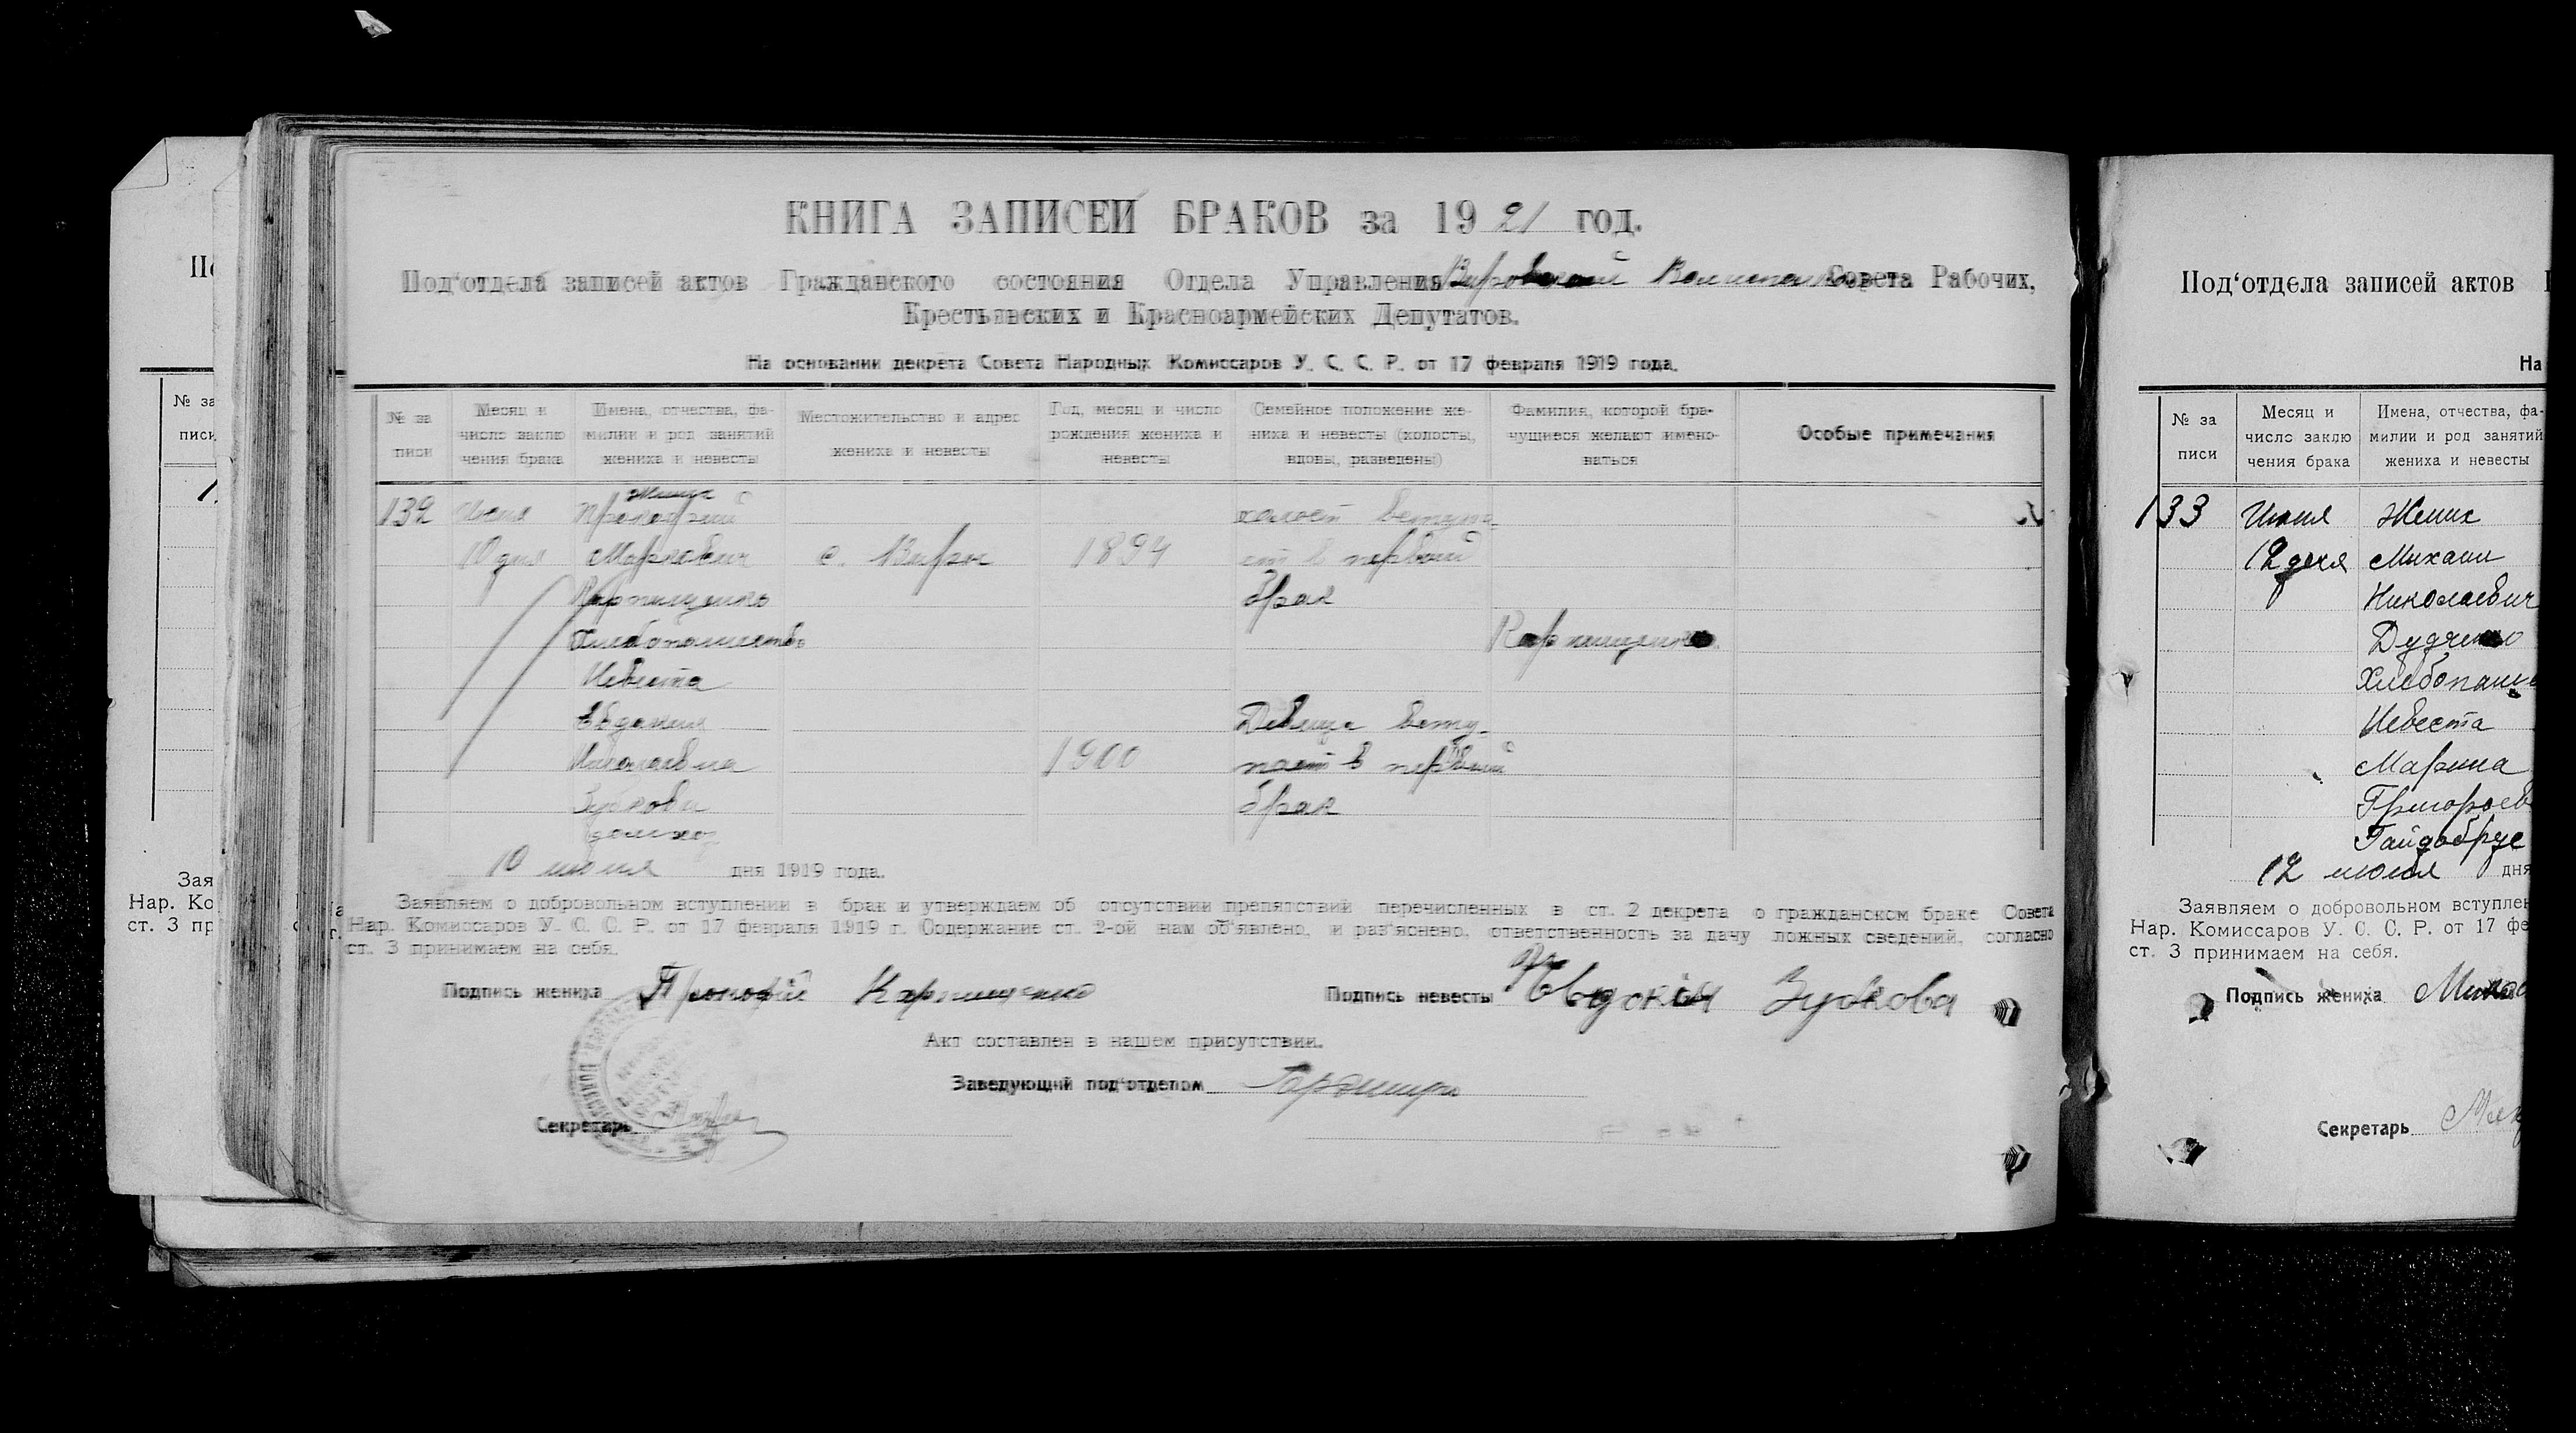 КНИГА ЗАПИСЕЙ БРАКОВ за 1921 год.
Под‘отдела записей актов Гражданского состояния Отдела Управления Совета Рабочих,
Крестьянских и Красноармейских Депутатов.
На основании декрета Совета Народных Комиссаров У. С. С. Р. от 17 февраля 1919 года.
№ за писи
Месяц и число заклю чения брака
Имена, отчества, фа- милии и род занятий жениха и невесты
Местожительство и адрес жениха и невесты
Год, месяц и число рождения жениха и невесты
Семейное положение же- ниха и невесты (холосты, вдовы, разведены)
Фамилия, которой бра- чущиеся желают имено- ваться
Особые примечания
Жених
132 Июня Прокофий холост вступа-
10 дня Маркович с. Виры 1894 ет в первый
Карпищенко брак
Хлебопашество Карпищенко
Невеста
Евдокия Девица всту-
Николаевна 1900 пает в первый
Зуокова брак
10 июня дня 1919 года.
Заявляем о добровольном вступлении в брак и утверждаем об отсутствии препятствий перечисленных в ст. 2 декрета о гражданском браке Совета
Нар. Комиссаров У. С. С. Р. от 17 февраля 1919 г. Содержание ст. 2-ой нам об‘явлено, и раз‘яснено, ответственность за дачу ложных сведений, согласно
ст. 3 принимаем на себя.
Подпись жениха Прокофій Карпищенко Подпись невесты Евдокія Зуокова
Акт составлен в нашем присутствии.
Заведующий под‘отделом
Секретарь
Под‘отдела записей актов
На
№ за писи
Месяц и число заклю чения брака
Имена, отчества, фа- милии и род занятий жениха и невесты
133 Июня Жених
12 дня Михаил
Николаевич
Дудченко
Хлебопаш
Невеста
Марина
Григорьев
12 июня дня
Заявляем о добровольном вступлен
Нар. Комиссаров У. С. С. Р. от 17 фе
ст. 3 принимаем на себя.
Подпись жениха
Секретарь
№ за
писи
Зая
Нар. Ко
ст. 3 пр